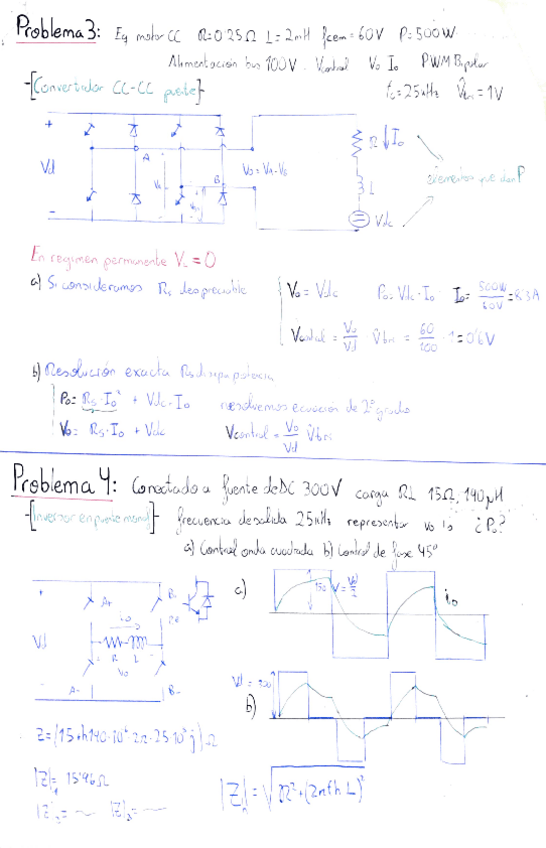 Problema 3: Eq motor CC R=0'25Ω L=2mH fcem=60V P=500W
Alimentación bus 100V. Vcontrol Vo Io PWM Bipolar
-[Convertidor CC-CC puente]-
fs=25kHz V̂tri=1V
+
Vd
-
A
B
VA
Vo=VA-VB
R ↓Io
L
Vdc
elementos que dan P
En regimen permanente VL=0
a) Si consideramos Rs despreciable
Vo = Vdc Po=Vdc·Io Io= 500W/60V =8'3A
Vcontrol = Vo/Vd · V̂tri = 60/100 · 1=0'6V
b) Resolución exacta Rs disipa potencia
Po= Rs·Io² + Vdc·Io resolvemos ecuación de 2º grado
Vo= Rs·Io + Vdc Vcontrol= Vo/Vd V̂tri
Problema 4: Conectado a fuente de DC 300V carga RL 15Ω, 140μH
-[Inversor en puente mono]- frecuencia de salida 25kHz representar vo io ¿Po?
a) Control onda cuadrada b) Control de fase 45º
+
A+
B+
io
Vd
R L
Vo
A-
B-
-
a)
150
io
Vd = 300
b)
Z=(15+h140·10⁻⁶·2π·25·10³j)Ω
|Z|₁ 15'96Ω
|Z|ₙ = √R²+(2πfhL)²